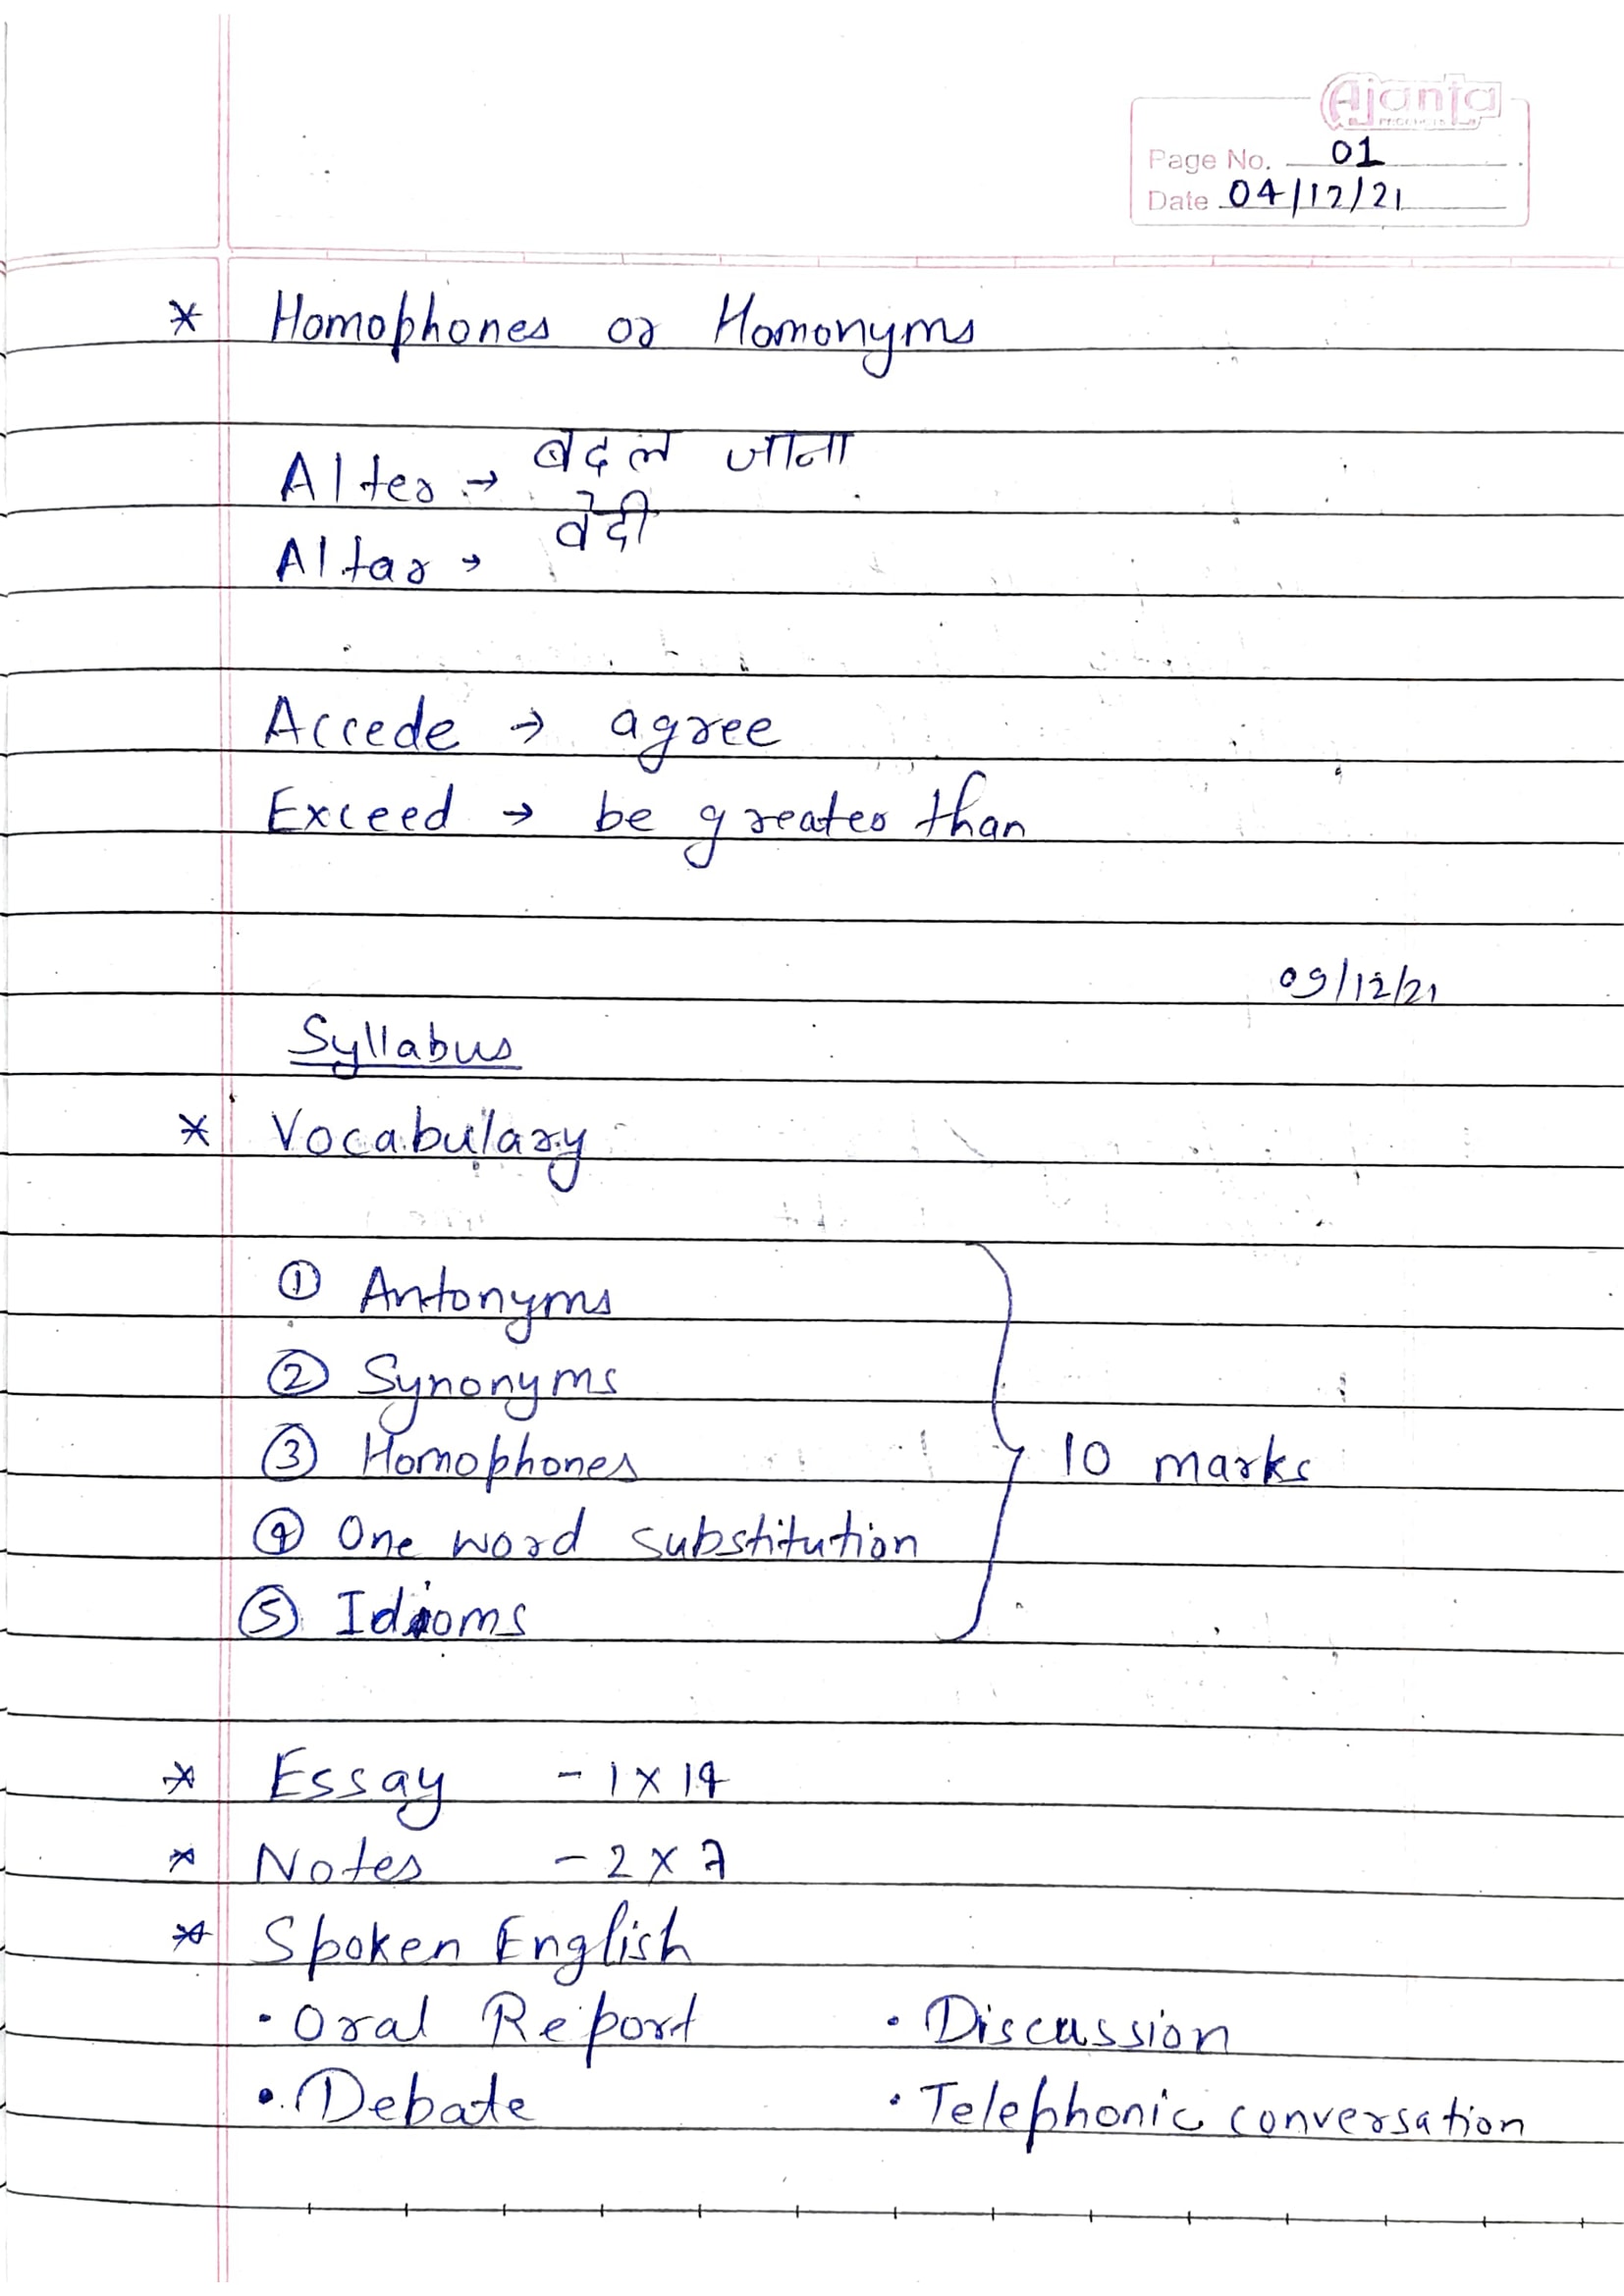 Ajanta
Page No. 01
Date 04/12/21
* Homophones or Homonyms
Alter → बदल जाना
Altar → वेदी
Accede → agree
Exceed → be greater than
09/12/21
Syllabus
* Vocabulary
① Antonyms
② Synonyms
③ Homophones
10 marks
④ One word substitution
⑤ Idioms
* Essay - 1 x 14
* Notes - 2 x 7
* Spoken English
• Oral Report • Discussion
• Debate • Telephonic conversation